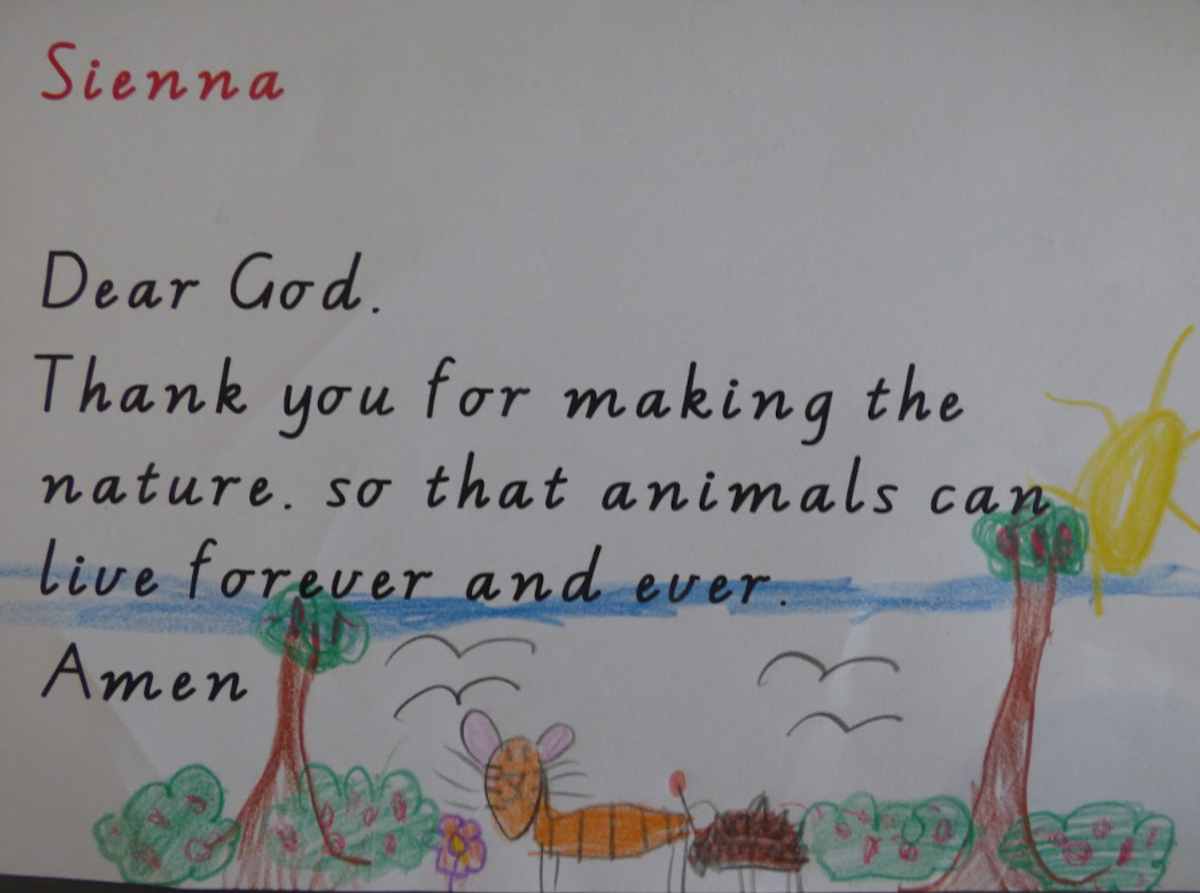 Sienna
Dear God.
Thank you for making the
nature. so that animals can
live forever and ever.
Amen